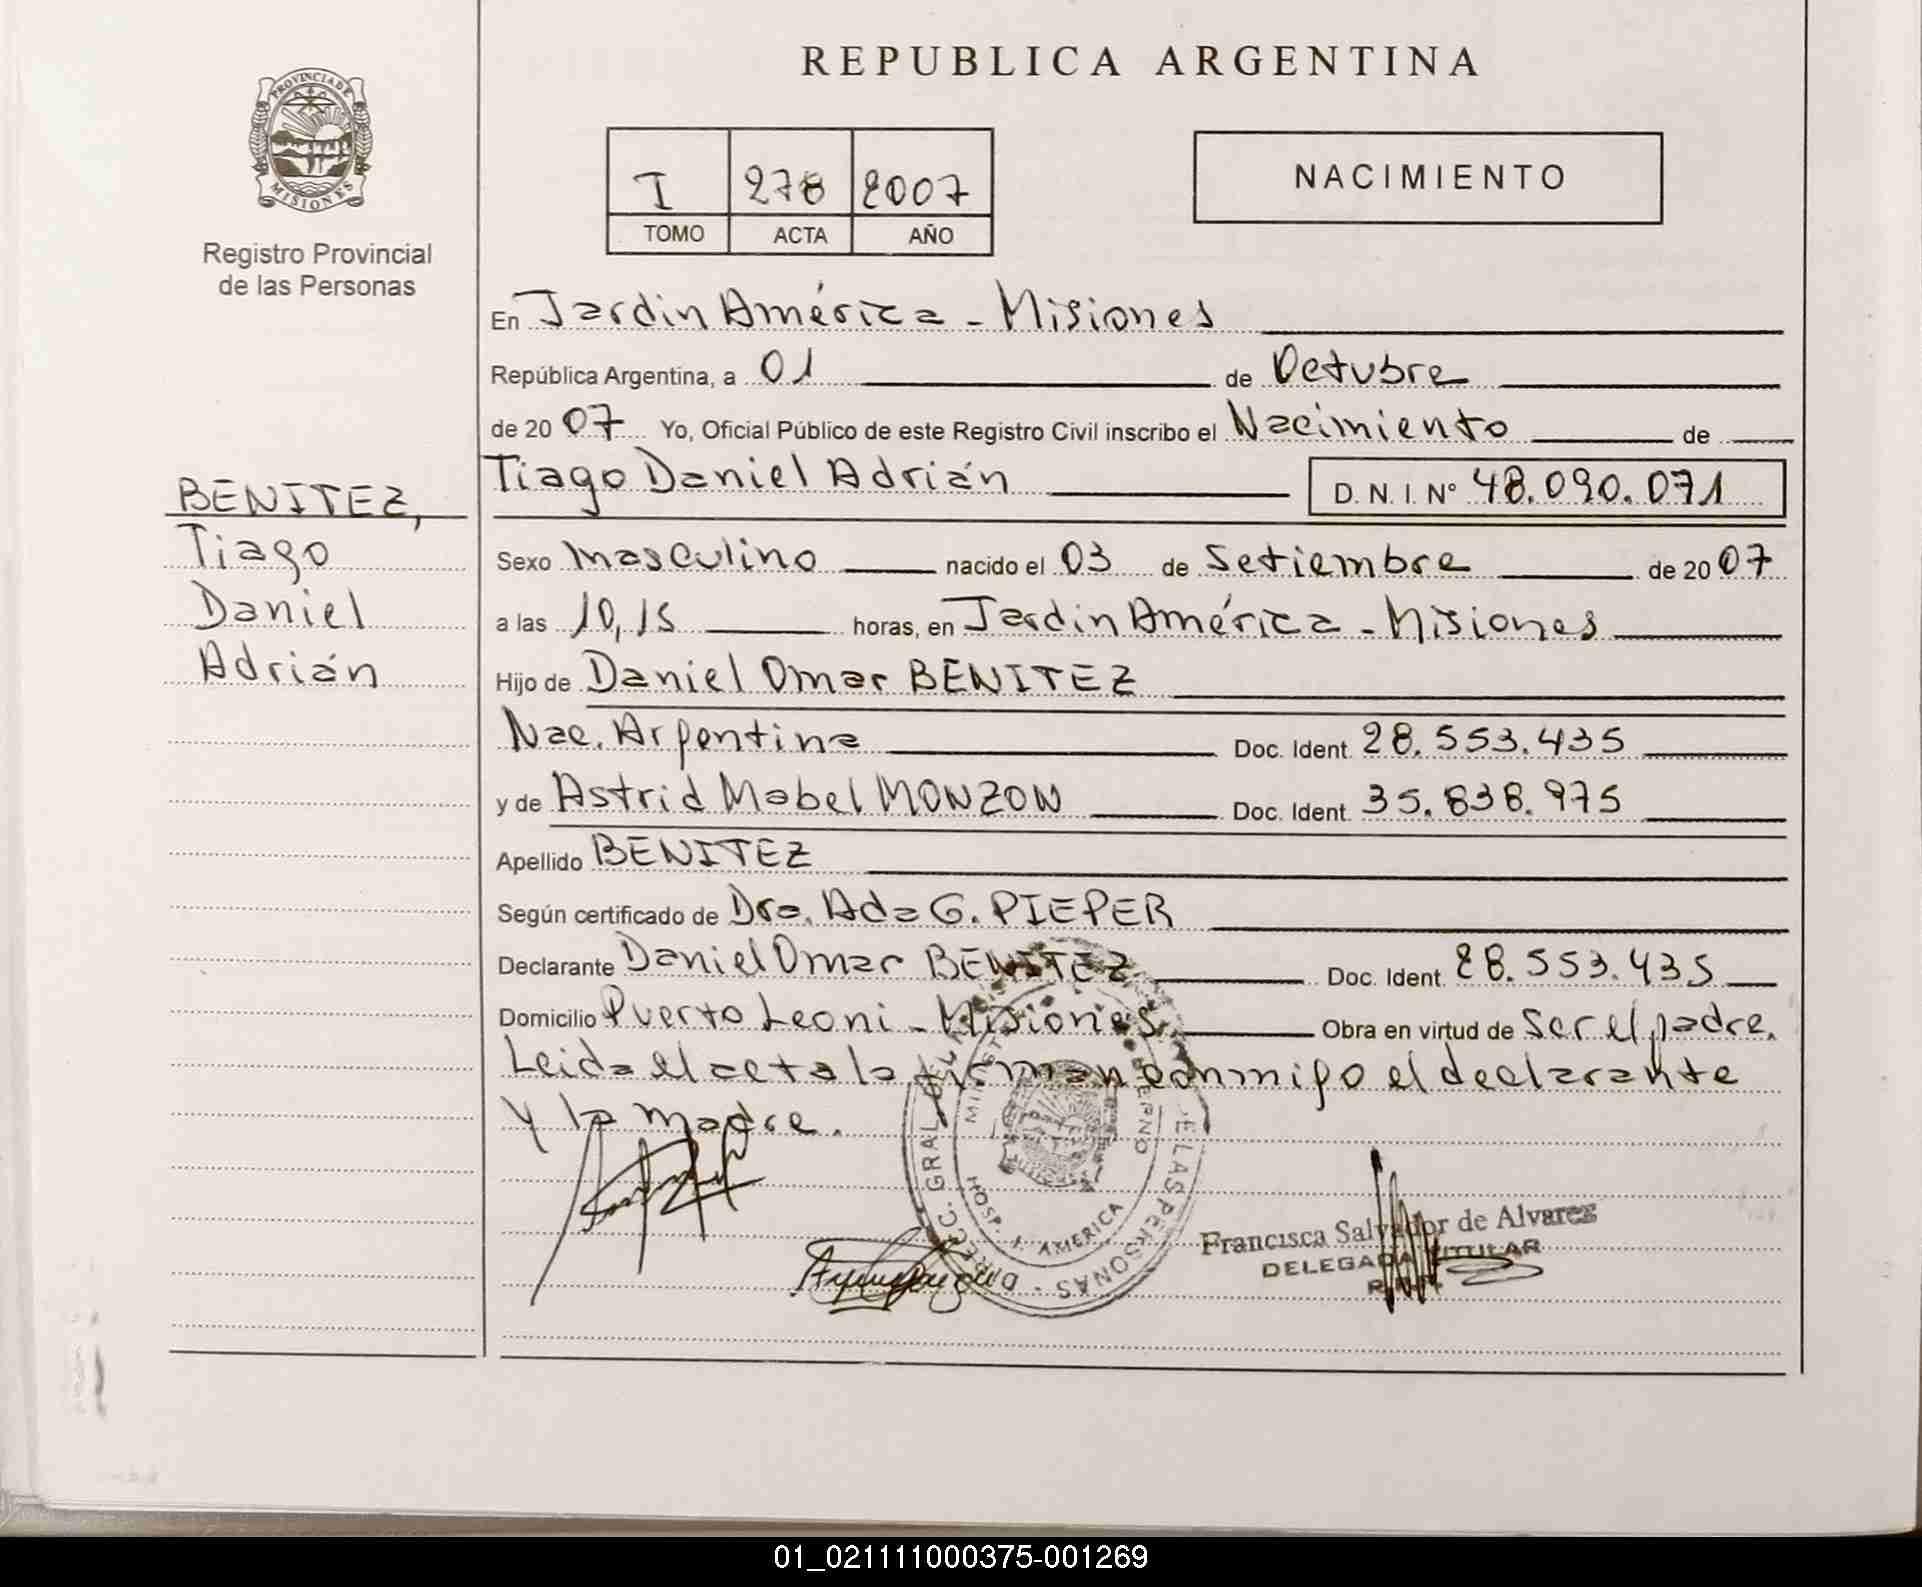 REPUBLICA ARGENTINA
PROVINCIA DE MISIONES
Registro Provincial
de las Personas
I 278 2007
TOMO ACTA AÑO
NACIMIENTO
En Jardin América - Misiones
República Argentina, a 01 de Octubre
de 2007 Yo, Oficial Público de este Registro Civil inscribo el Nacimiento de
Tiago Daniel Adrián D. N. I. N° 48.090.071
BENITEZ,
Tiago
Daniel
Adrián
Sexo masculino nacido el 03 de Setiembre de 2007
a las 10,15 horas, en Jardin América - Misiones
Hijo de Daniel Omar BENITEZ
Nac. Argentina Doc. Ident. 28.553.435
y de Astrid Mabel MONZON Doc. Ident. 35.838.975
Apellido BENITEZ
Según certificado de Dra. Ada G. PIEPER
Declarante Daniel Omar BENITEZ Doc. Ident. 28.553.435
Domicilio Puerto Leoni - Misiones Obra en virtud de ser el padre.
Leida el acta la firman conmigo el declarante
y la madre.
HOSP. J. AMERICA
Francisca Salvador de Alvarez
DELEGADA TITULAR
01_021111000375-001269